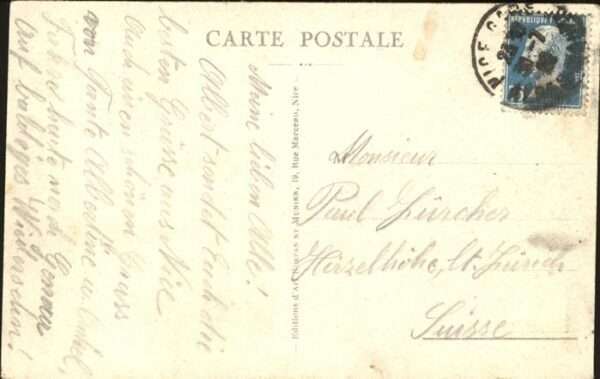 CARTE POSTALE
Meine lieben Alle!
Albert sendet Euch die
besten Grüsse aus Nice.
Auch einen schönen Gruss
von Tante Albertine u. Onkel,
Fahre heute nach Genua
auf baldiges Wiedersehn!
Editions d'Art MUNIER, 19, Rue Marceau, Nice
NICE
Monsieur
Paul Zürcher
Hirzelhöhe, Ct. Zürich
Suisse